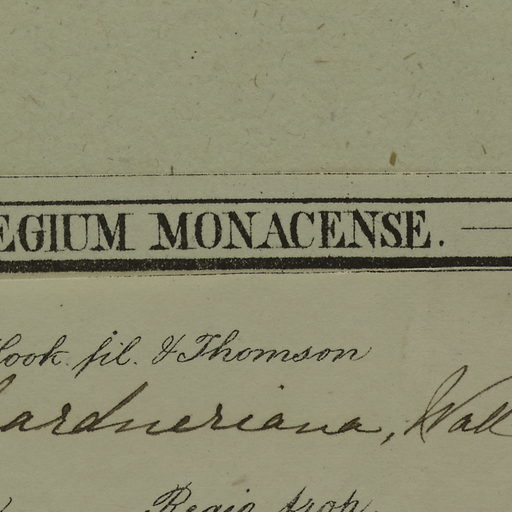 EGIUM MONACENSE.
Hook. fil. & Thomson
ardneriana, Wall
Regio trop.